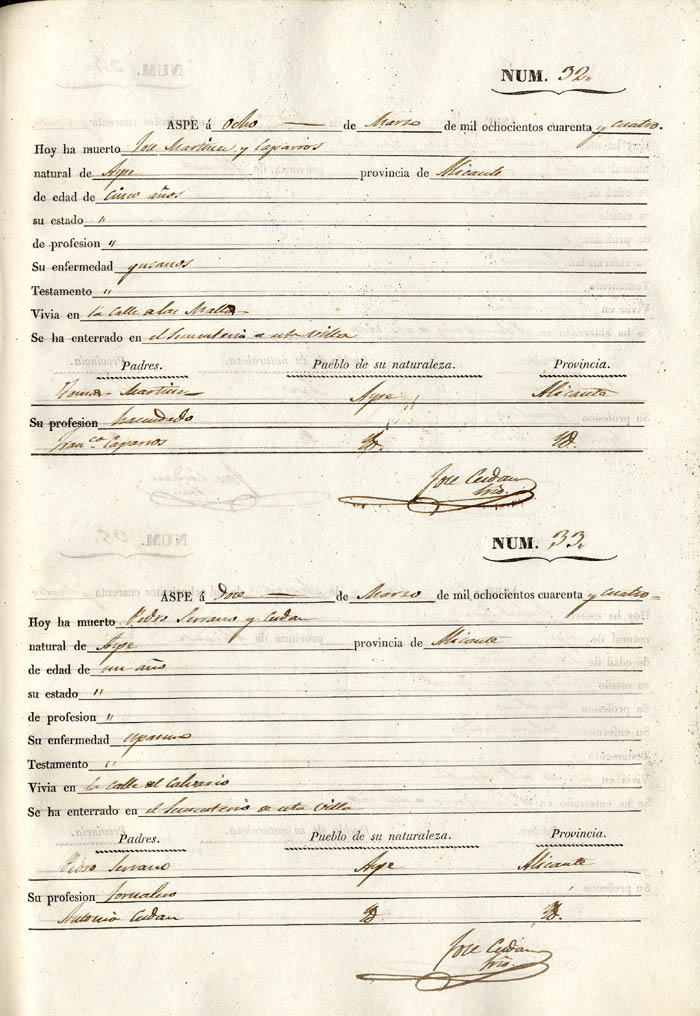 NUM. 32.
ASPE á Ocho de Marzo de mil ochocientos cuarenta y cuatro.
Hoy ha muerto Jose Martinez y Caparros
natural de Aspe provincia de Alicante
de edad de cinco años
su estado "
de profesion "
Su enfermedad gusanos
Testamento "
Vivia en la calle a las Mallas
Se ha enterrado en el Sementerio de esta Villa
Padres. Pueblo de su naturaleza. Provincia.
Tomas Martinez Aspe Alicante
Su profesion hacendado
Franca Caparros Yd. Yd.
Jose Cerdan
Srio.
NUM. 33.
ASPE á Doce de Marzo de mil ochocientos cuarenta y cuatro
Hoy ha muerto Pedro Serrano y Cerdan
natural de Aspe provincia de Alicante
de edad de un año
su estado "
de profesion "
Su enfermedad espasmo
Testamento "
Vivia en la calle el Calvario
Se ha enterrado en el Sementerio de esta Villa
Padres. Pueblo de su naturaleza. Provincia.
Pedro Serrano Aspe Alicante
Su profesion Jornalero
Antonia Cerdan Yd. Yd.
Jose Cerdan
Srio.